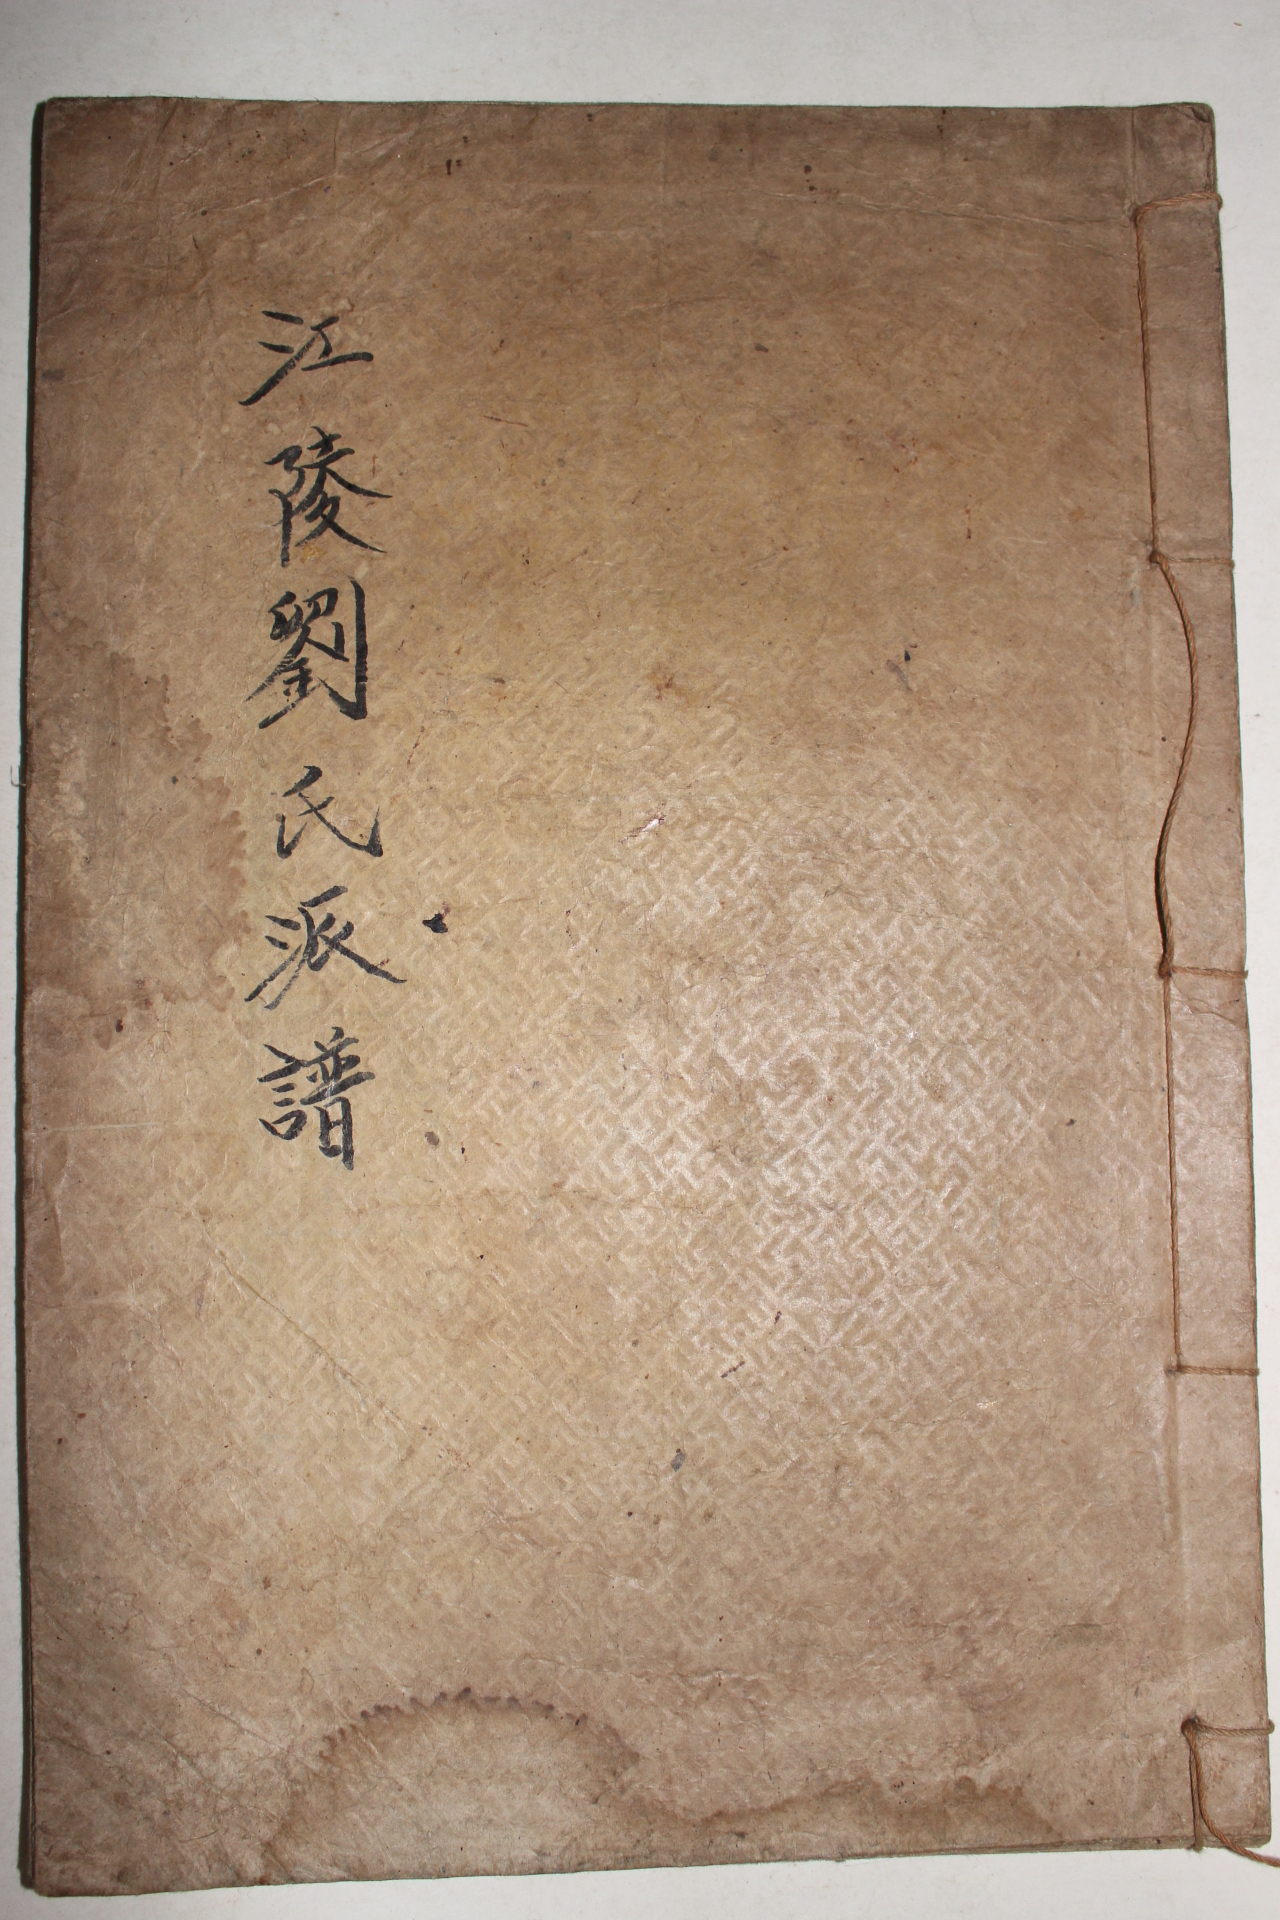 江陵劉氏派譜